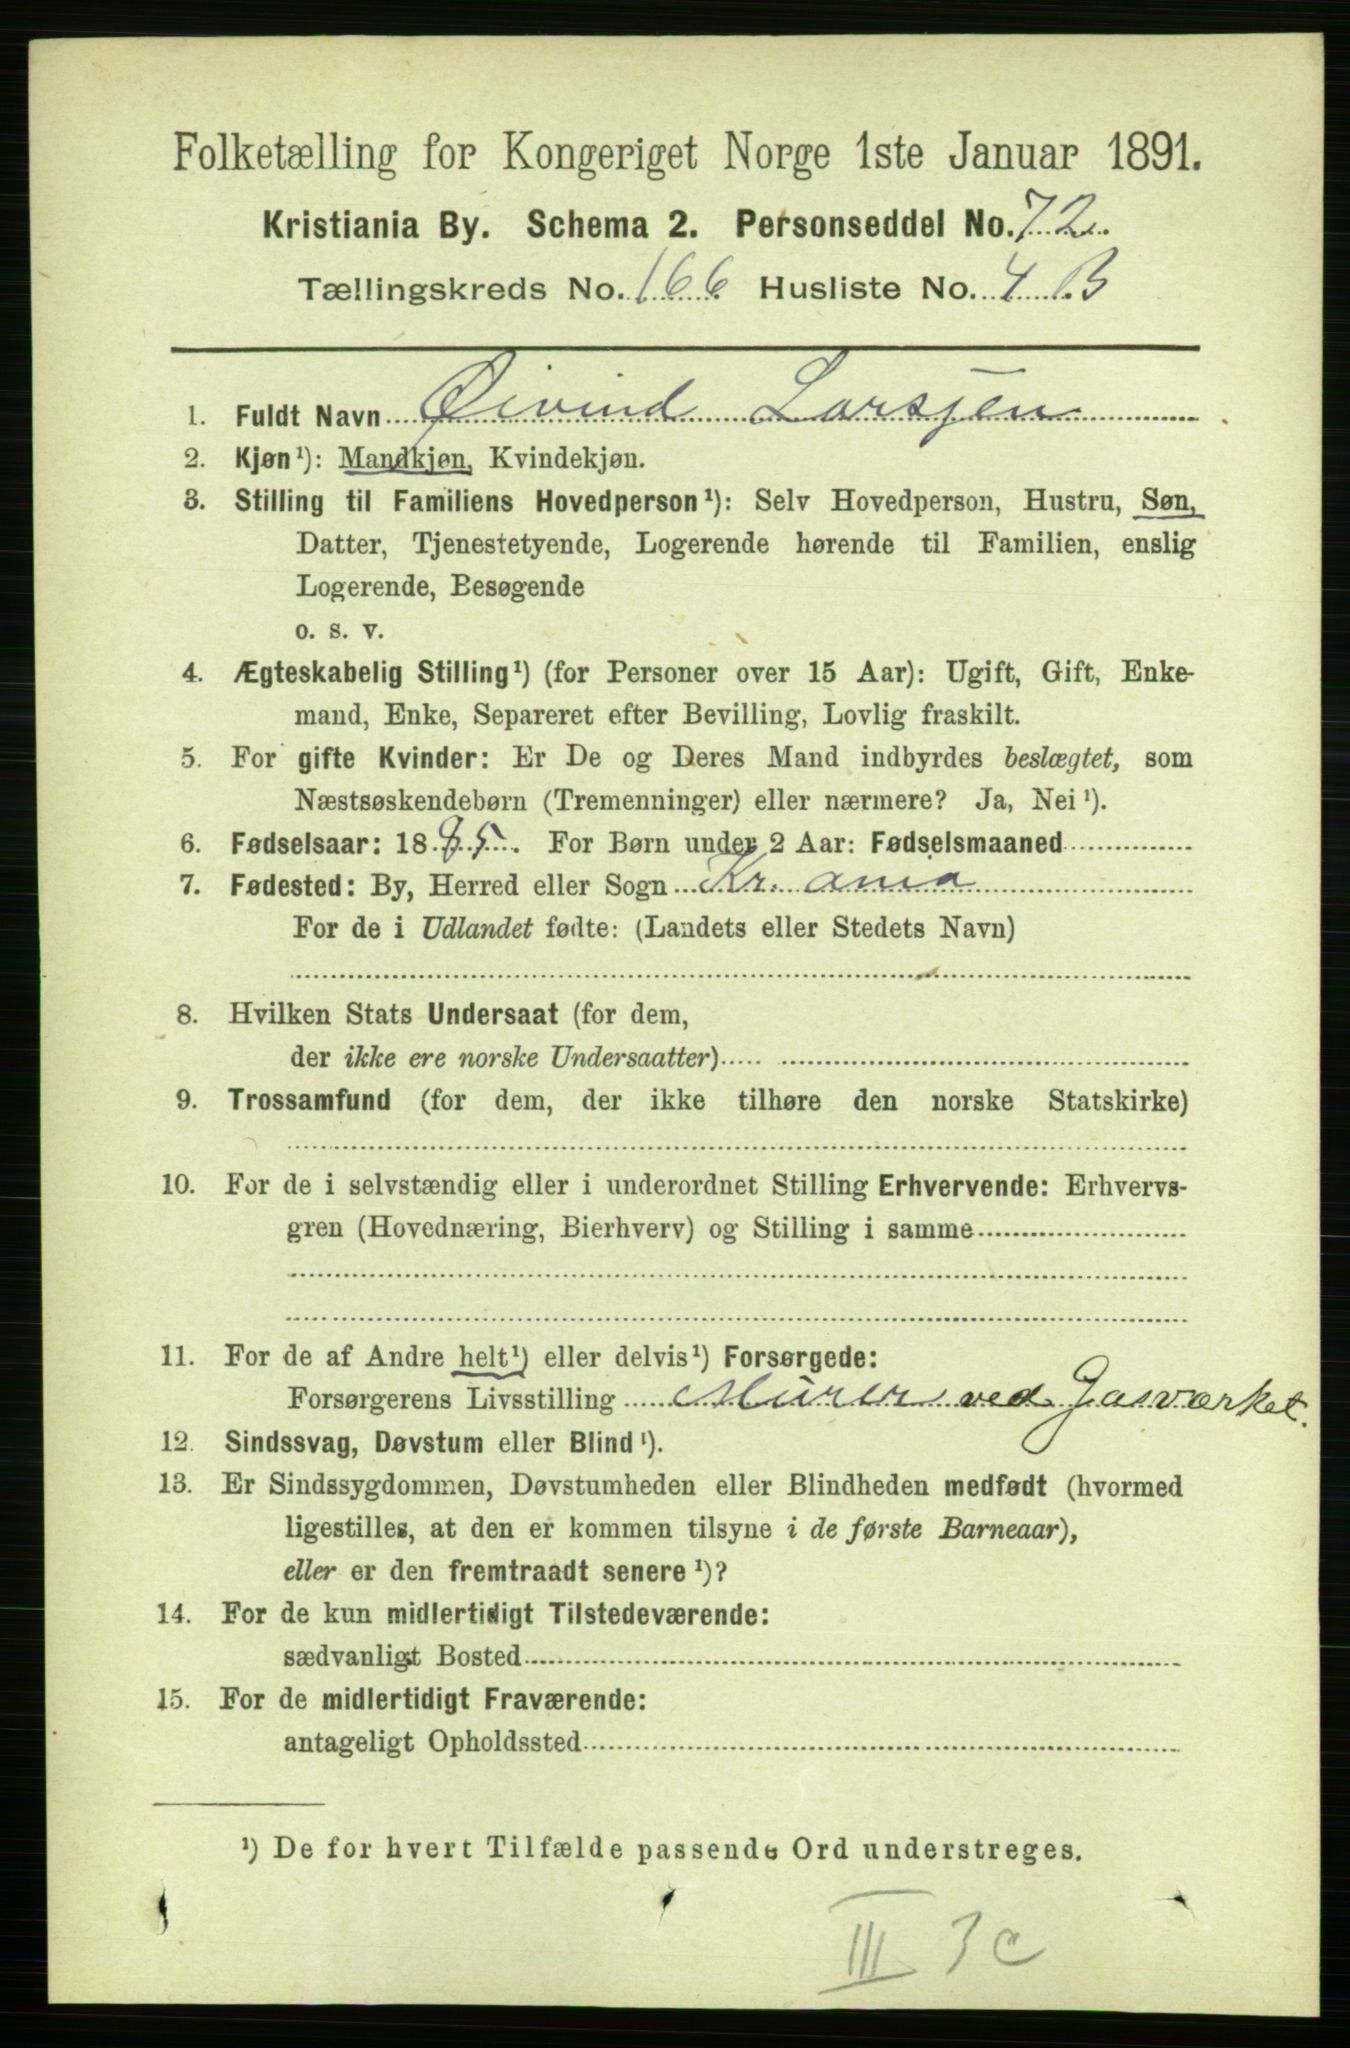 Folketælling for Kongeriget Norge 1ste Januar 1891.
Kristiania By. Schema 2. Personseddel No. 72.
Tællingskreds No. 166 Husliste No. 4 B
1. Fuldt Navn Øivind Larssen
2. Kjøn¹): Mandkjøn, Kvindekjøn.
3. Stilling til Familiens Hovedperson¹): Selv Hovedperson, Hustru, Søn,
Datter, Tjenestetyende, Logerende hørende til Familien, enslig
Logerende, Besøgende
o. s. v.
4. Ægteskabelig Stilling¹) (for Personer over 15 Aar): Ugift, Gift, Enke-
mand, Enke, Separeret efter Bevilling, Lovlig fraskilt.
5. For gifte Kvinder: Er De og Deres Mand indbyrdes beslægtet, som
Næstsøskendebørn (Tremenninger) eller nærmere? Ja, Nei¹).
6. Fødselsaar: 1885. For Børn under 2 Aar: Fødselsmaaned
7. Fødested: By, Herred eller Sogn Kr. ania
For de i Udlandet fødte: (Landets eller Stedets Navn)
8. Hvilken Stats Undersaat (for dem,
der ikke ere norske Undersaatter)
9. Trossamfund (for dem, der ikke tilhøre den norske Statskirke)
10. For de i selvstændig eller i underordnet Stilling Erhvervende: Erhvervs-
gren (Hovednæring, Bierhverv) og Stilling i samme
11. For de af Andre helt¹) eller delvis¹) Forsørgede:
Forsørgerens Livsstilling Murer ved Gasværket.
12. Sindssvag, Døvstum eller Blind¹).
13. Er Sindssygdommen, Døvstumheden eller Blindheden medfødt (hvormed
ligestilles, at den er kommen tilsyne i de første Barneaar),
eller er den fremtraadt senere¹)?
14. For de kun midlertidigt Tilstedeværende:
sædvanligt Bosted
15. For de midlertidigt Fraværende:
antageligt Opholdssted
¹) De for hvert Tilfælde passende Ord understreges.
III 3c